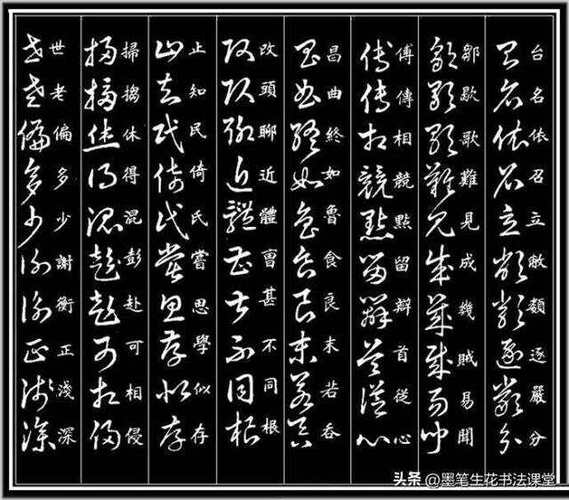 台名依召立敝額逐嚴分
鄒歇歌難見成幾賊易聞
傅傳相競點留辯首從心
昌曲終如魯食良末若吞
改頭聊近體曹甚不同根
止知民倚氏嘗思學似存
掃搗休得混彭赴可相侵
世老偏多少謝衡正淺深
头条 @墨笔生花书法课堂